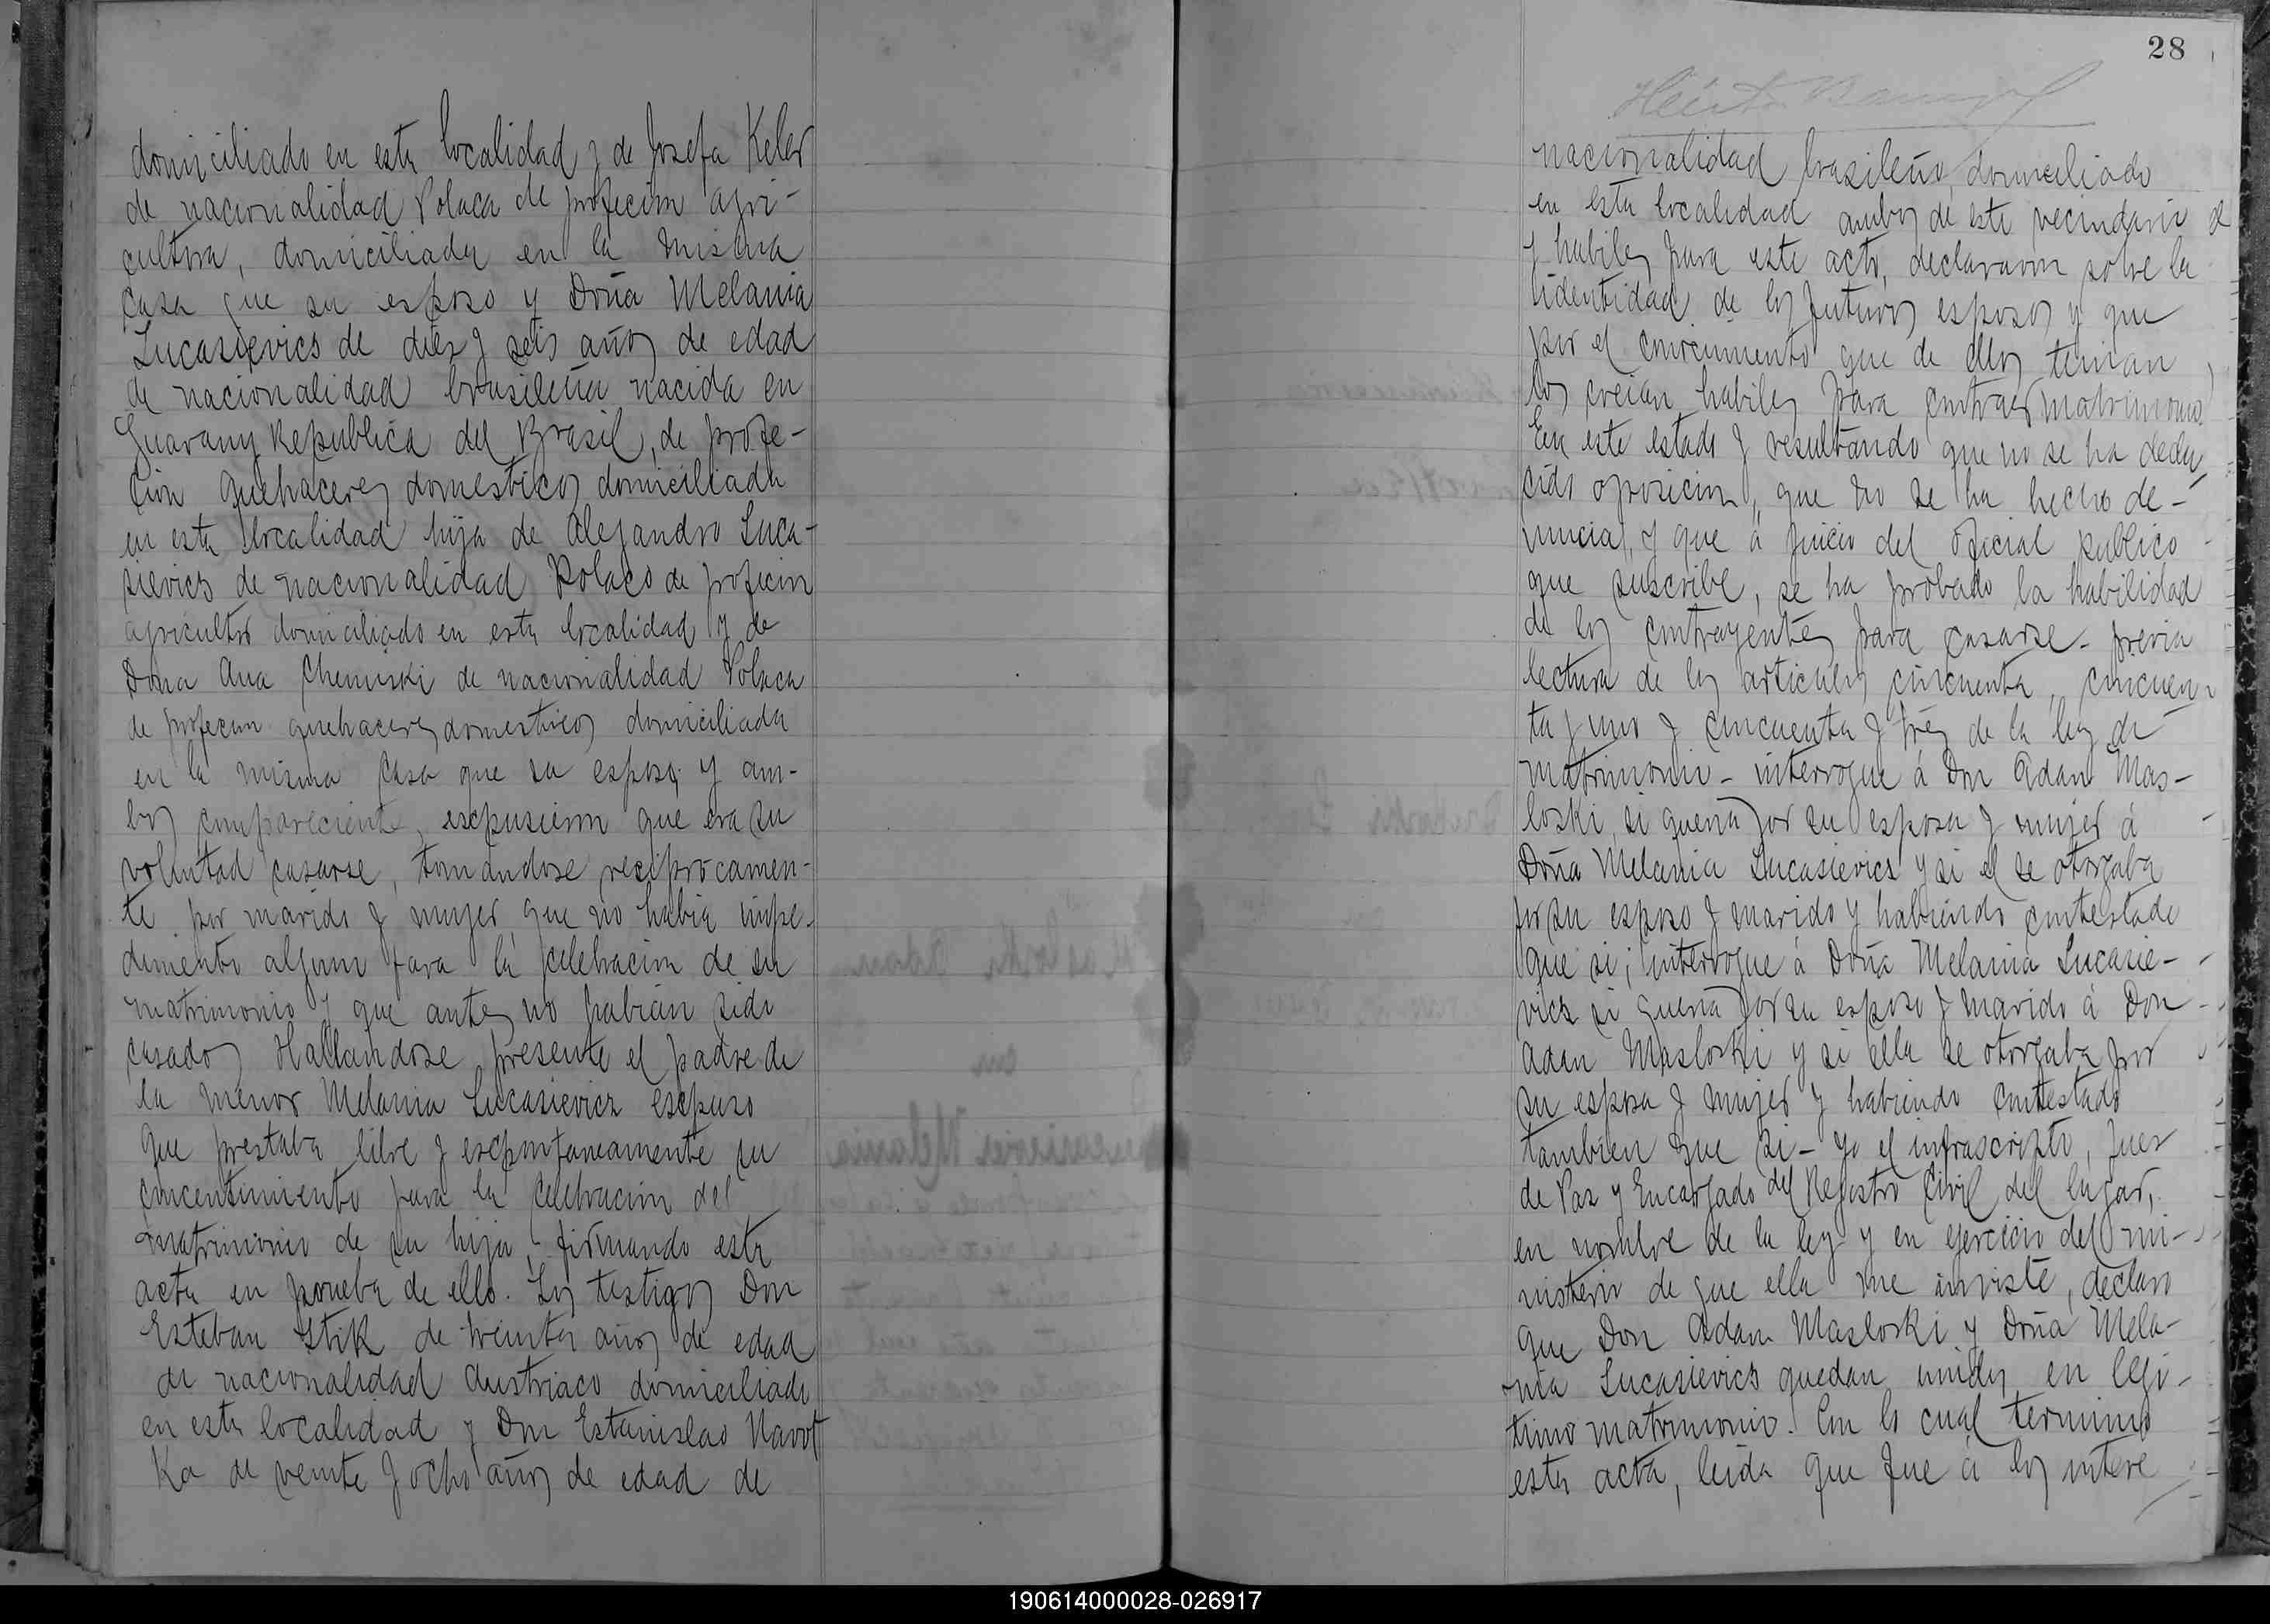 domiciliado en esta localidad y de Josefa Keler
de nacionalidad Polaca de profecion agri-
cultora, domiciliada en la misma
casa que su esposo y Doña Melania
Lucasievics de diez y seis años de edad
de nacionalidad brasileña nacida en
Guarany Republica del Brasil, de profe-
cion quehaceres domesticos domiciliada
en esta localidad hija de Alejandro Luca-
sievics de nacionalidad Polaco de profecion
agricultor domiciliado en esta localidad y de
Doña Ana Cheniski de nacionalidad Polaca
de profecion quehaceres domesticos domiciliada
en la misma casa que su esposo y am-
bos comparecientes, expusieron que era su
voluntad casarse, tomandose reciprocamen-
te por marido y mujer, que no habia impe-
dimento alguno para la celebracion de su
matrimonio y que antes no habian sido
casados Hallandose presente el padre de
la menor Melania Lucasievicz expuso
que prestaba libre y expontaneamente su
concentimiento para la celebracion del
matrimonio de su hija, firmando esta
acta en prueba de ello. Los testigos Don
Esteban Stik de treinta años de edad
de nacionalidad Austriaco domiciliado
en esta localidad y Don Estanislao Navot
Ka de veinte y ocho años de edad de
28
nacionalidad brasileño, domiciliado
en esta localidad ambos de este vecindario
y habiles para este acto, declararon sobre la
identidad de los futuros esposos y que
por el conocimiento que de ellos tenian
los creian habiles para contraer matrimonio
En este estado y resultando que no se ha dedu
cido oposicion, que no se ha hecho de-
nuncia, y que á juicio del oficial publico
que suscribe, se ha probado la habilidad
de los contrayentes para casarse - previa
lectura de los articulos cincuenta, cincuen-
ta y uno y cincuenta y tres de la ley de
matrimonio - interrogue á Don Adan Mas-
loski, si queria por su esposa y mujer á
Doña Melania Lucasievics y si el se otorgaba
por su esposo y marido y habiendo contestado
que si; interrogue á Doña Melania Lucasie-
vics si queria por su esposo y marido á Don
Adan Masloski y si ella se otorgaba por
su esposa y mujer y habiendo contestado
tambien que si - yo el infrascripto, Juez
de Paz y Encargado del Registro Civil del lugar,
en nombre de la ley y en ejercicio del mi-
nisterio de que ella me inviste, declaro
que Don Adan Masloski y Doña Mela-
nia Lucasievics quedan unidos en legi-
timo matrimonio. Con lo cual termino
esta acta, leida que fue á los intere
190614000028-026917